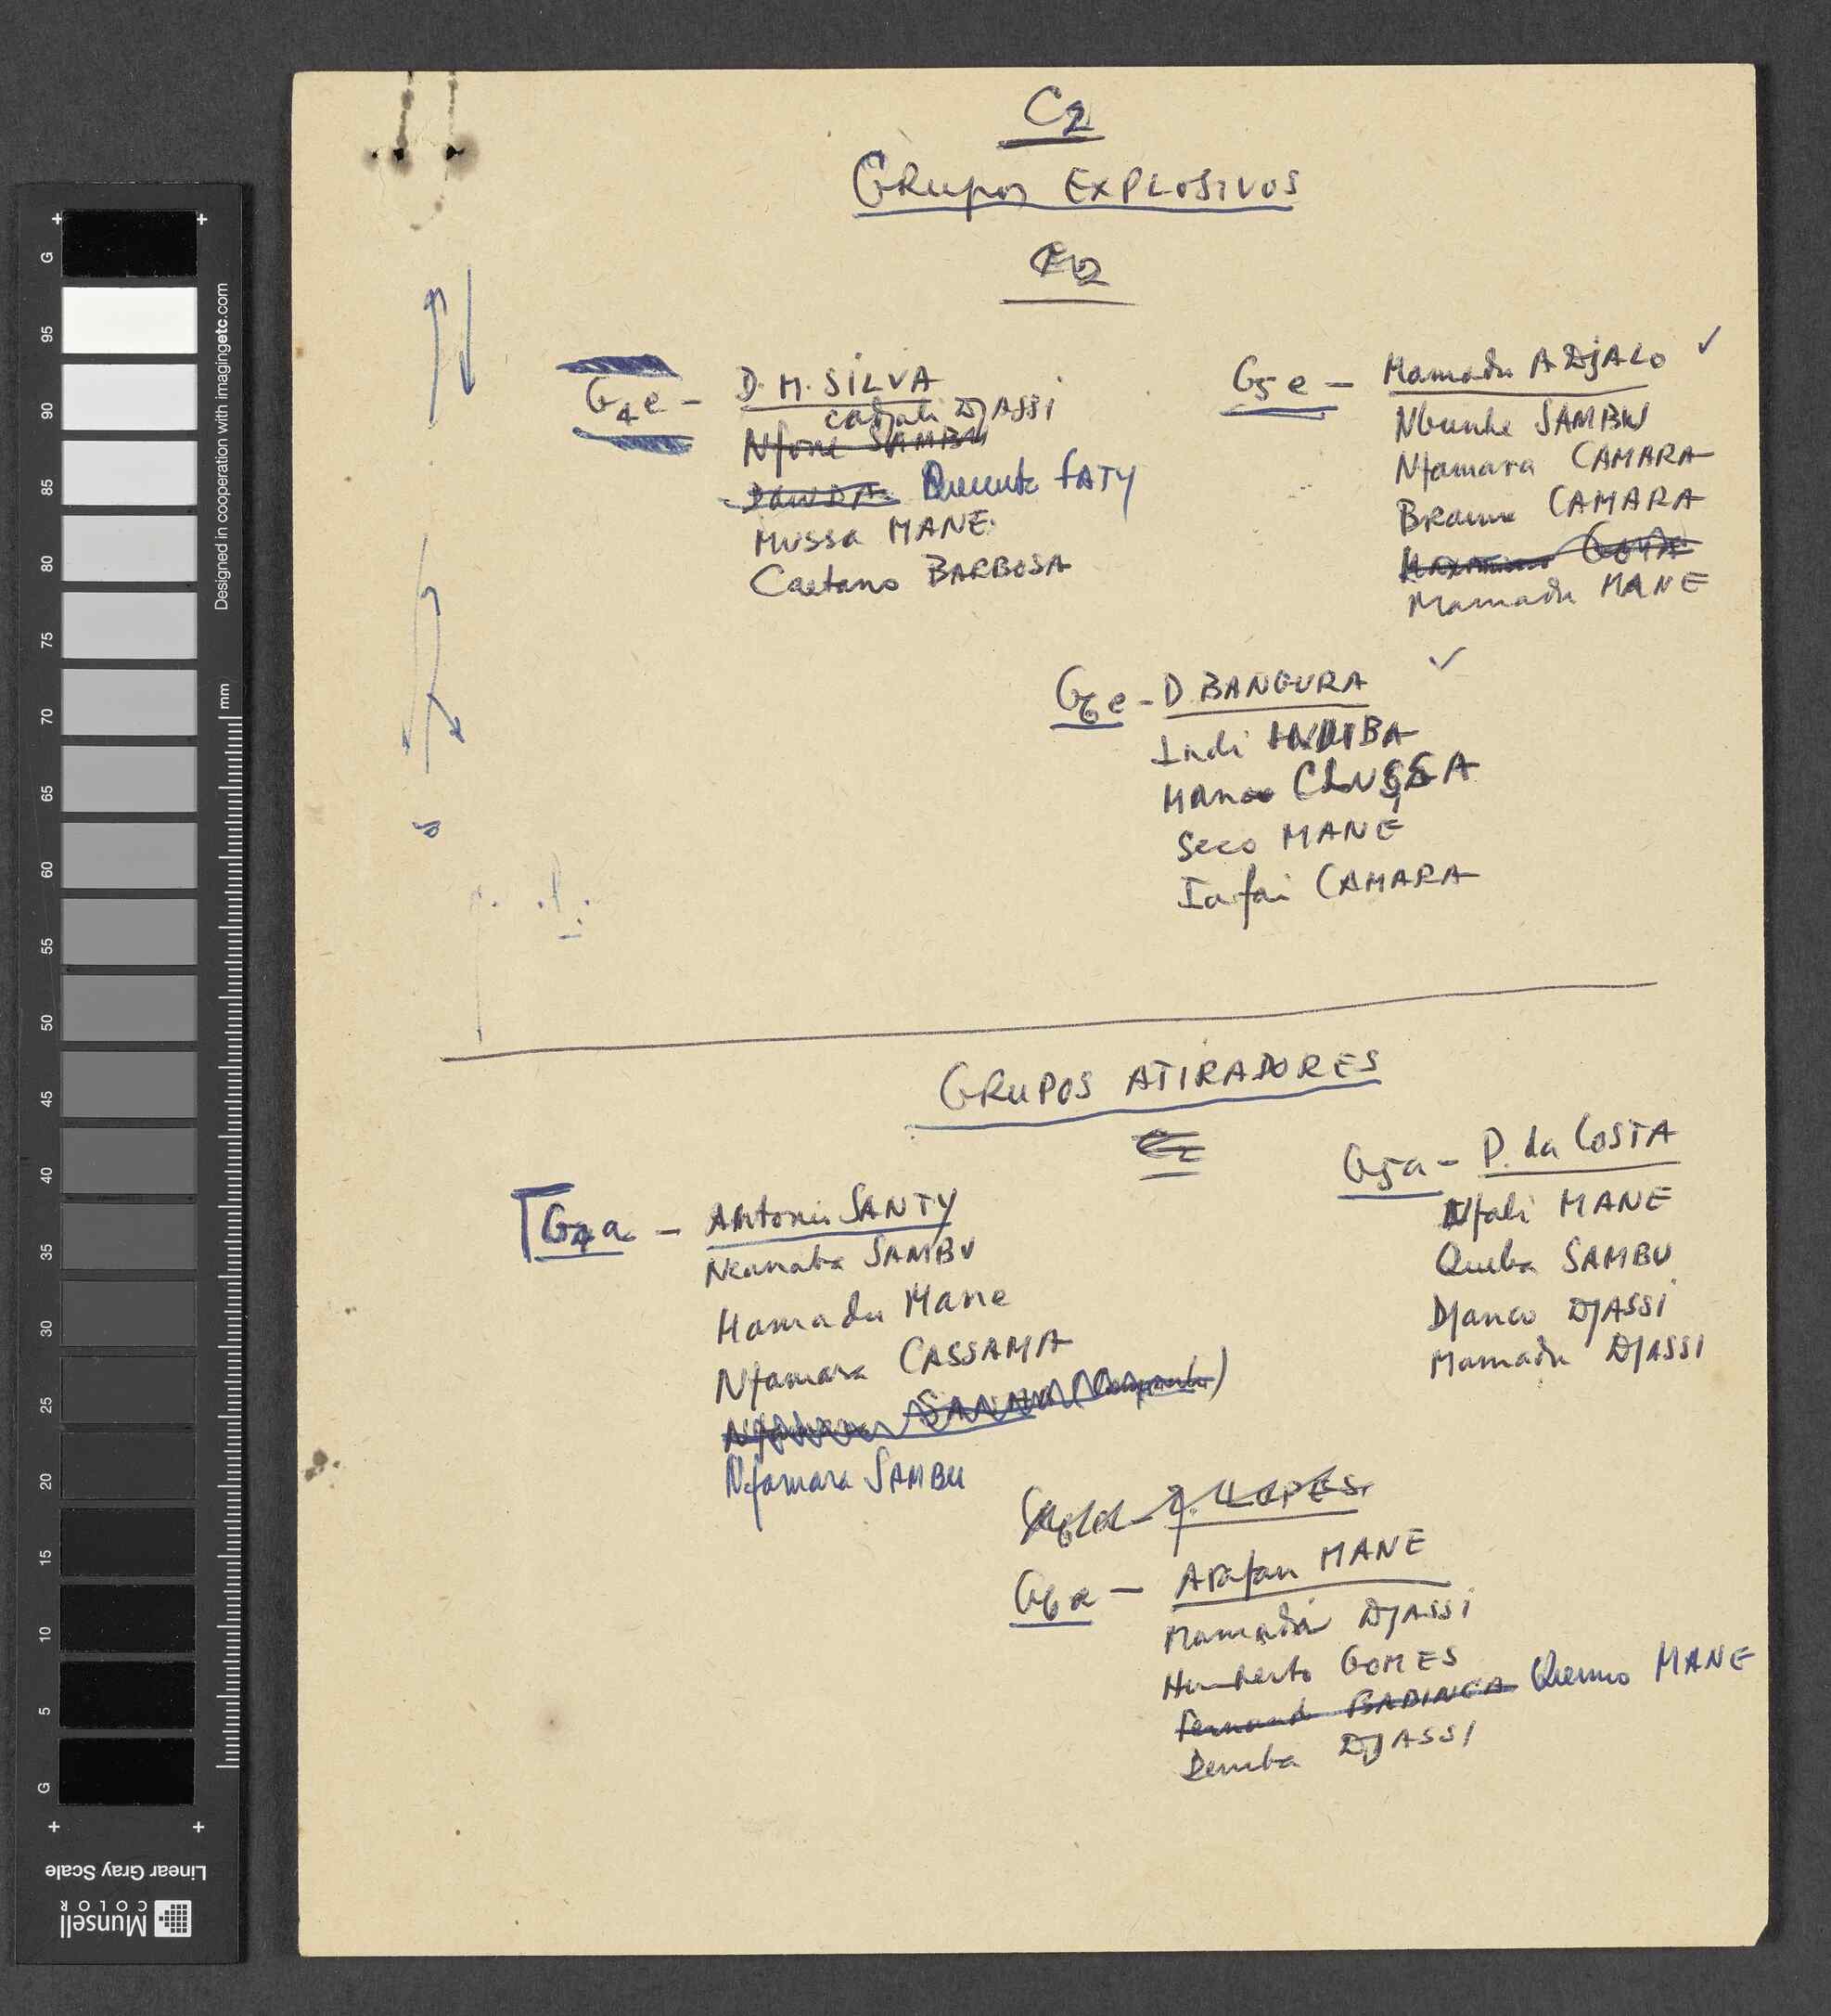 C2
GRupos EXPLOSIVOS
G4e - D. M. SILVA
Cadjali DJASSI
Nfone SAMBU
Quecuta FATY
Mussa MANE
Caetano BARBOSA
G5e - Mamadu A DjALO ✓
SAMBU
Nfamara CAMARA
Braima CAMARA
Mamadu MANE
G6e - D. BANGURA ✓
Indi
Seco MANE
Iafai CAMARA
GRUPOS ATIRADORES
G4a - Antonio SANTY
SAMBU
Mamadu Mane
Nfamara CASSAMA
Nfamara SAMBU
G5a - P. da COSTA
Nfali MANE
Queba SAMBU
Djanco DJASSI
Mamadu DJASSI
LOPES
G6a - Arafan MANE
Mamadu DJASSI
Humberto GOMES
Fernando BADINCA Quemo MANE
Demba DJASSI
G 95 90 85 80 75 70 65 60 55 50 45 40 35 30 25 20 15 10 5 G
Designed in cooperation with imagingetc.com
mm
Linear Gray Scale
Munsell
COLOR